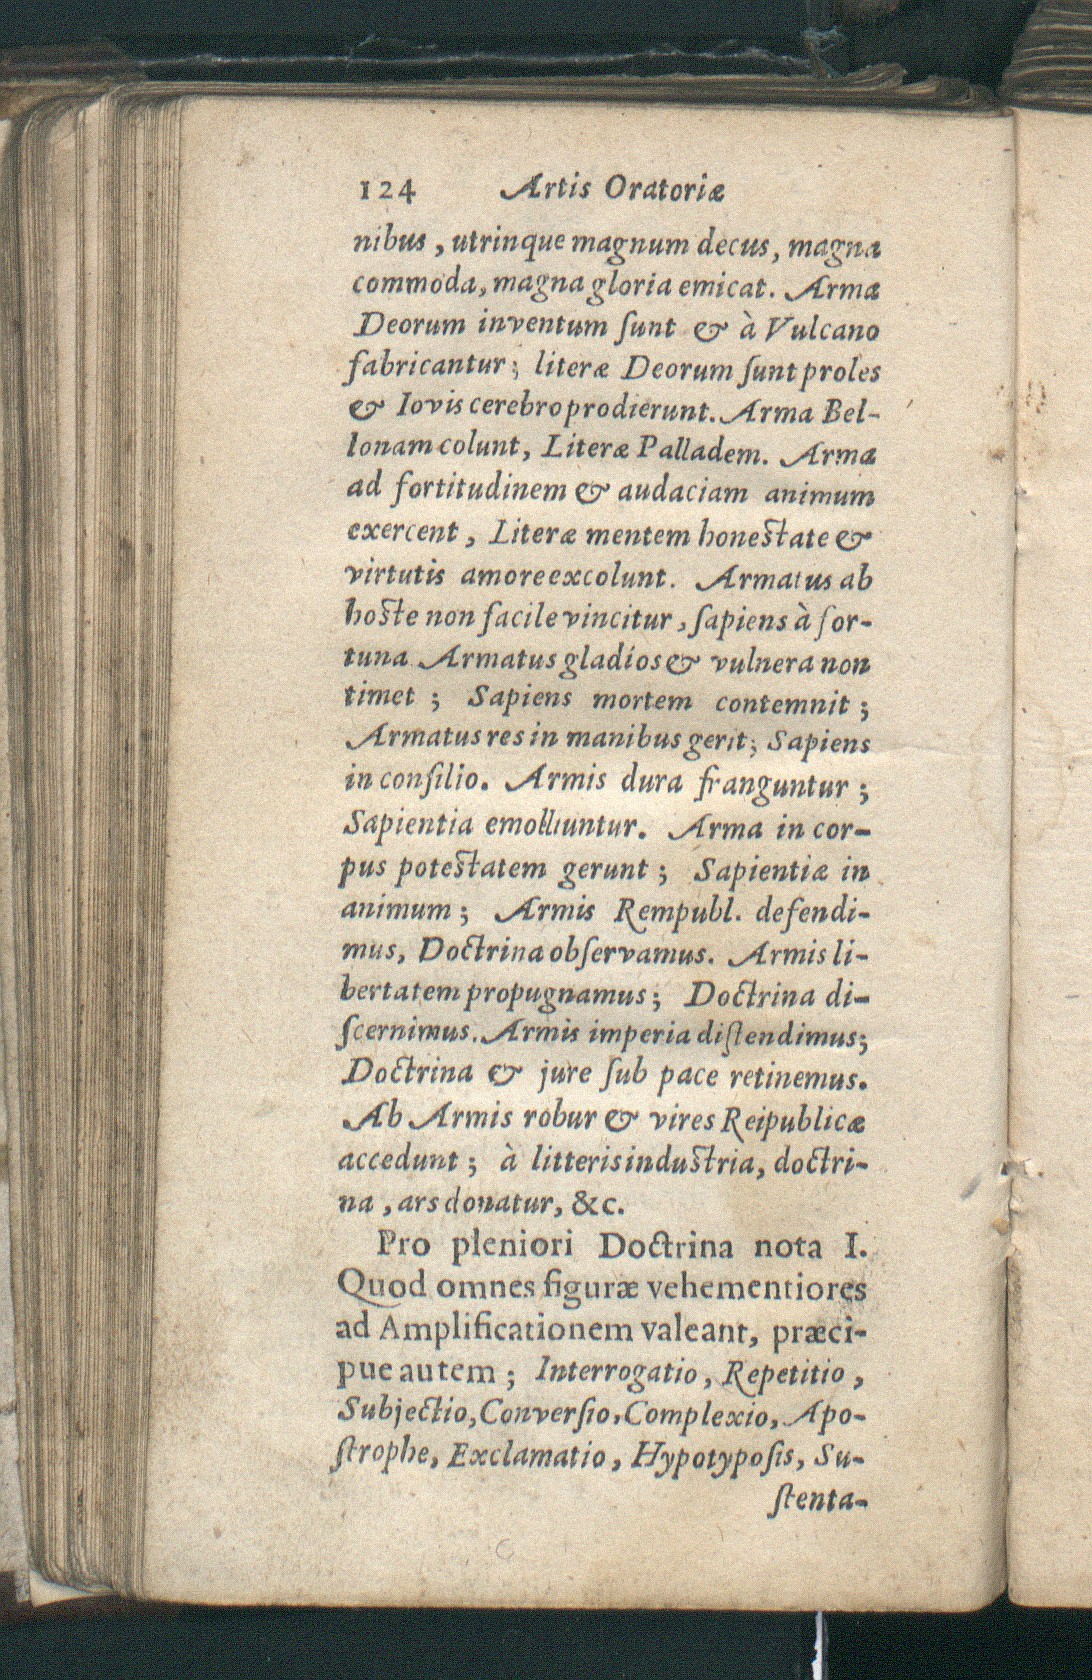 124 Artis Oratoriæ
nibus, utrinque magnum decus, magna
commoda, magna gloria emicat. Arma
Deorum inventum ſunt & à Vulcano
fabricantur; literæ Deorum ſunt proles
& Iovis cerebro prodierunt. Arma Bel-
lonam colunt, Literæ Palladem. Arma
ad fortitudinem & audaciam animum
exercent, Literæ mentem honeſtate &
virtutis amore excolunt. Armatus ab
hoſte non facile vincitur, ſapiens à for-
tuna Armatus gladios & vulnera non
timet; Sapiens mortem contemnit;
Armatus res in manibus gerit; Sapiens
in conſilio. Armis dura franguntur;
Sapientia emolliuntur. Arma in cor-
pus poteſtatem gerunt; Sapientiæ in
animum; Armis Rempubl. defendi-
mus, Doctrina obſervamus. Armis li-
bertatem propugnamus; Doctrina di-
ſcernimus. Armis imperia diſtendimus;
Doctrina & jure ſub pace retinemus.
Ab Armis robur & vires Reipublicæ
accedunt; à litteris induſtria, doctri-
na, ars donatur, &c.
Pro pleniori Doctrina nota I.
Quod omnes figuræ vehementiores
ad Amplificationem valeant, præci-
pue autem; Interrogatio, Repetitio,
Subjectio, Converſio, Complexio, Apo-
ſtrophe, Exclamatio, Hypotypoſis, Su-
ſtenta-